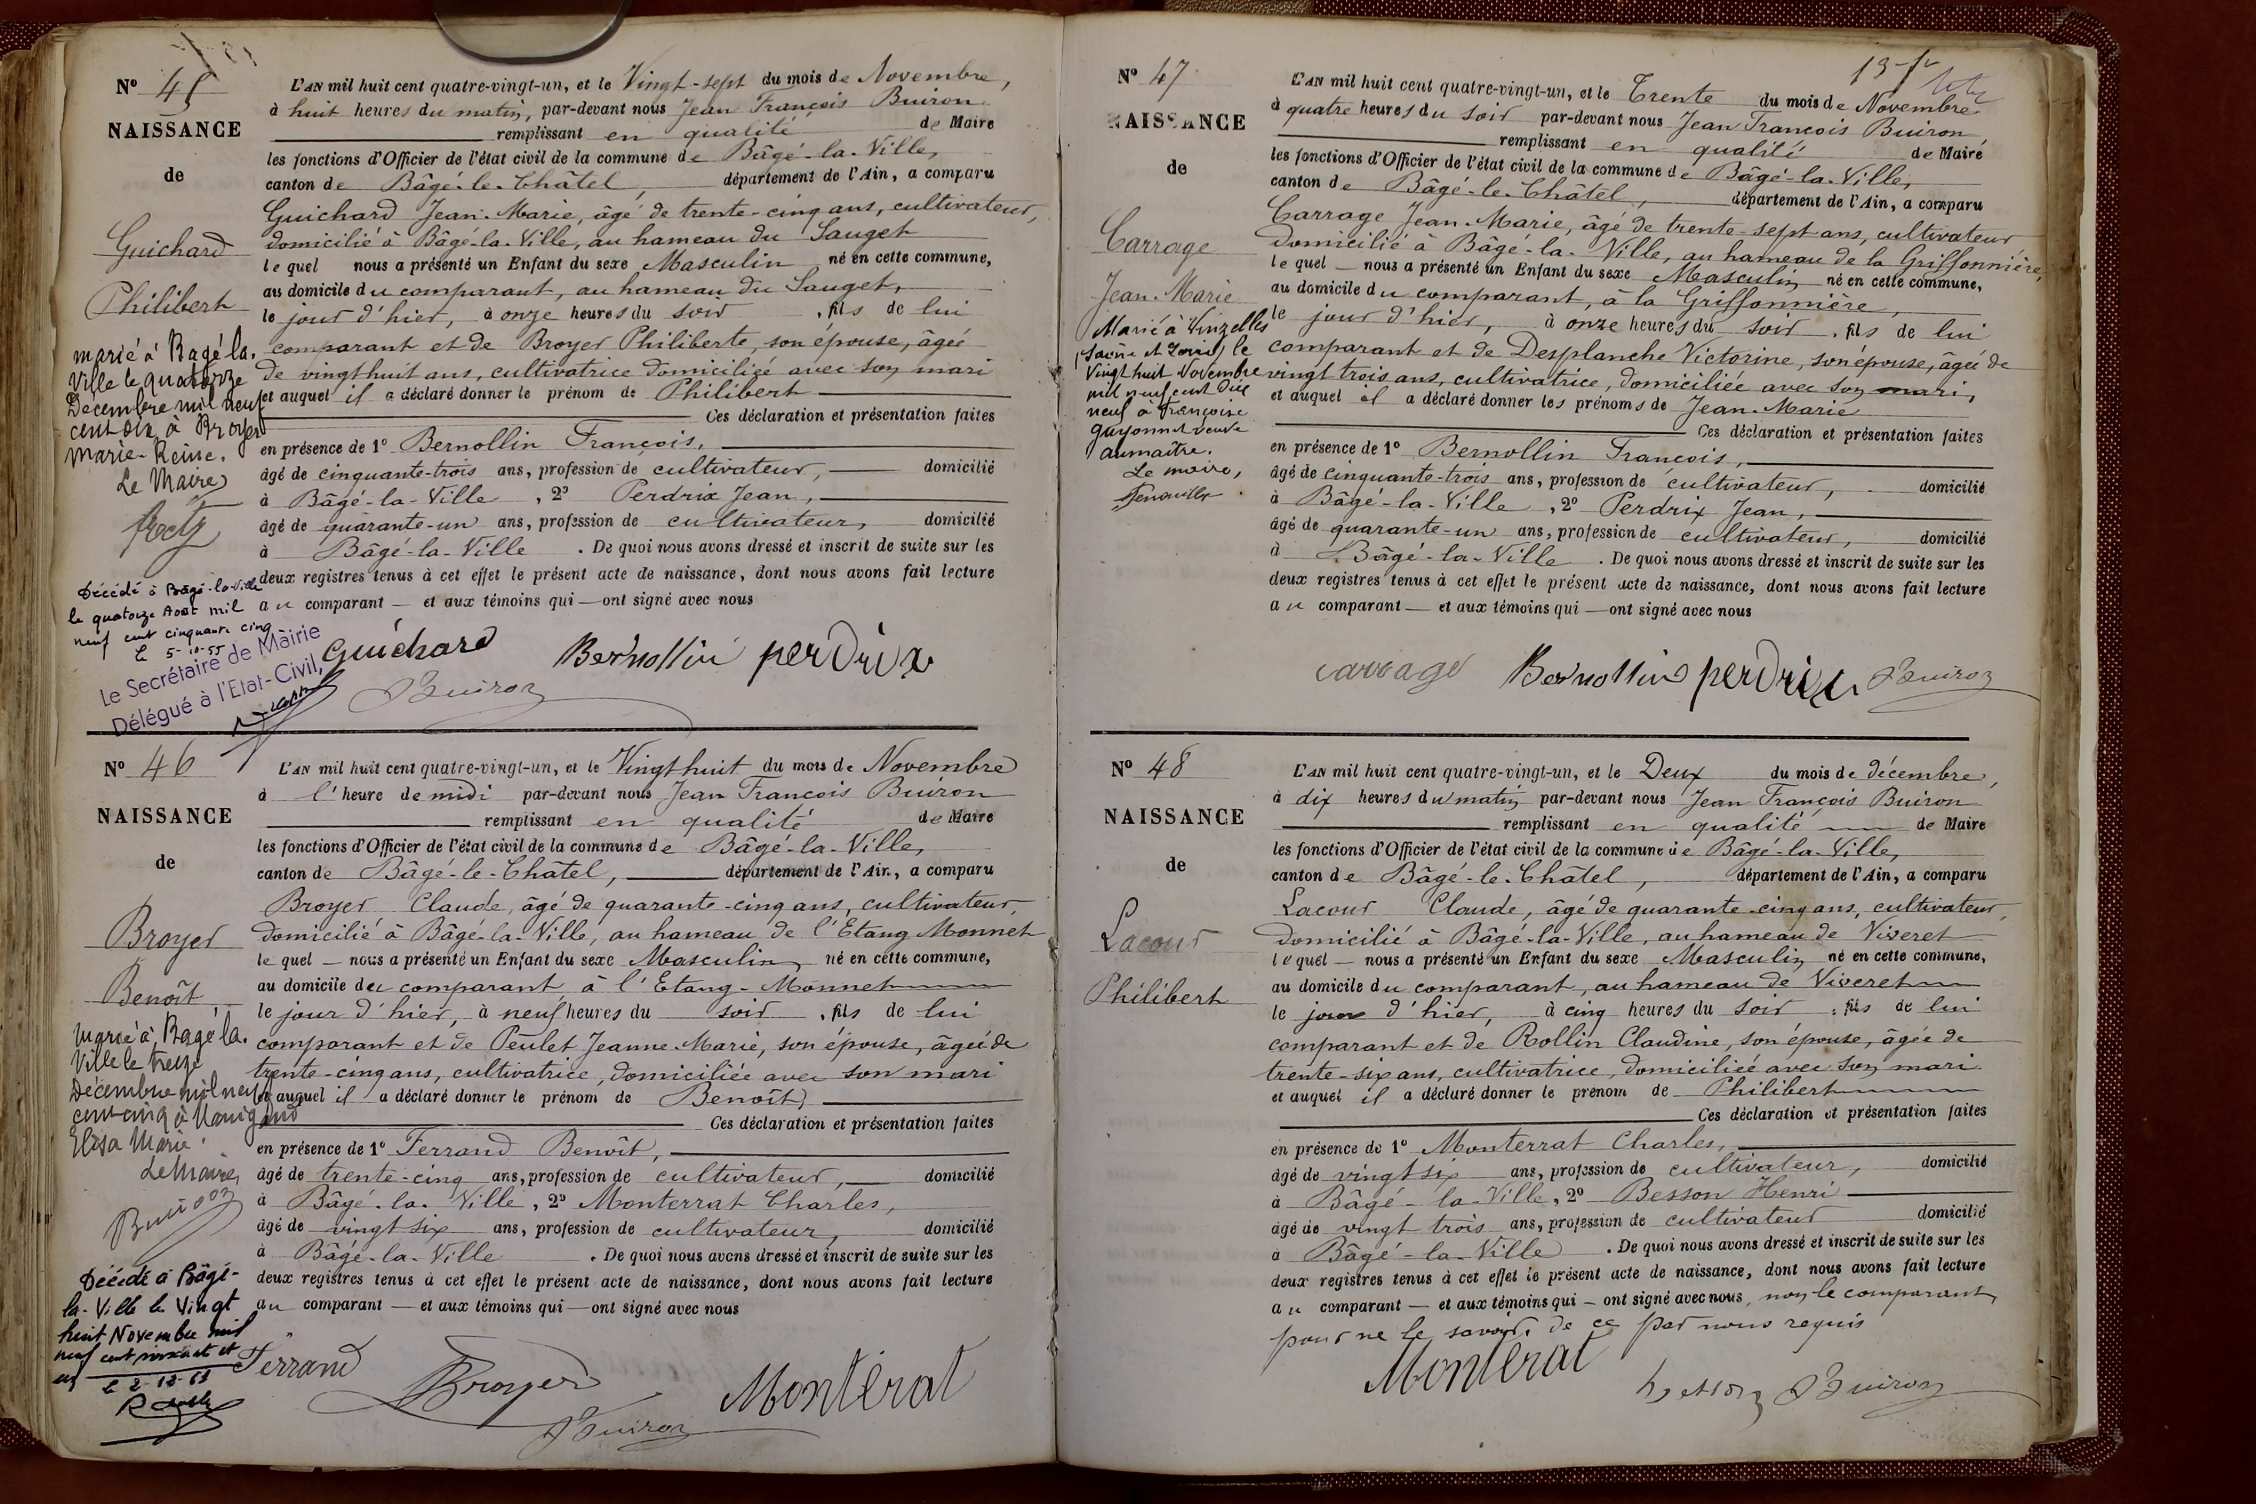 Nº 45
NAISSANCE
de
Guichard
Philibert
marié à Bagé la
Ville le quatorze
Décembre mil neuf
cent dix à Broyer
Marie-Reine.
Le Maire
Décédé à Bâgé-la-Ville
le quatorze Août mil
neuf cent cinquante cinq
le 5-10-55
Le Secrétaire de Mairie
Délégué à l'Etat-Civil,
L'AN mil huit cent quatre-vingt-un, et le Vingt-sept du mois de Novembre,
à huit heures du matin, par-devant nous Jean François Buiron
remplissant en qualité de Maire
les fonctions d'Officier de l'état civil de la commune de Bâgé-la-Ville,
canton de Bâgé-le-Châtel, département de l'Ain, a comparu
Guichard Jean-Marie, âgé de trente-cinq ans, cultivateur,
domicilié à Bâgé-la-Ville, au hameau du Sauget
lequel nous a présenté un Enfant du sexe Masculin né en cette commune,
au domicile du comparant, au hameau du Sauget,
le jour d'hier, à onze heures du soir, fils de lui
comparant et de Broyer Philiberte, son épouse, âgée
de vingt huit ans, cultivatrice domiciliée avec son mari
et auquel il a déclaré donner le prénom de Philibert
Ces déclaration et présentation faites
en présence de 1º Bernollin François,
âgé de cinquante-trois ans, profession de cultivateur, domicilié
à Bâgé-la-Ville, 2º Perdrix Jean,
âgé de quarante-un ans, profession de cultivateur, domicilié
à Bâgé-la-Ville. De quoi nous avons dressé et inscrit de suite sur les
deux registres tenus à cet effet le présent acte de naissance, dont nous avons fait lecture
au comparant — et aux témoins qui — ont signé avec nous
Guichard Bernollin perdrix
Buiron
Nº 46
NAISSANCE
de
Broyer
Benoît
Marié à Bagé la
Ville le treize
Décembre mil neuf
cent cinq à
Elisa Marie.
Le Maire,
Buiron
Décédé à Bâgé-
la-Ville le Vingt
huit Novembre mil
neuf cent soixante et
un
L'AN mil huit cent quatre-vingt-un, et le Vingt huit du mois de Novembre
à l'heure de midi par-devant nous Jean François Buiron
remplissant en qualité de Maire
les fonctions d'Officier de l'état civil de la commune de Bâgé-la-Ville,
canton de Bâgé-le-Châtel, département de l'Ain, a comparu
Broyer Claude, âgé de quarante-cinq ans, cultivateur,
domicilié à Bâgé-la-Ville, au hameau de l'Etang Monnet
lequel — nous a présenté un Enfant du sexe Masculin né en cette commune,
au domicile du comparant à l'Etang-Monnet
le jour d'hier, à neuf heures du soir, fils de lui
comparant et de Peulet Jeanne-Marie, son épouse, âgée de
trente-cinq ans, cultivatrice, domiciliée avec son mari
et auquel il a déclaré donner le prénom de Benoît
Ces déclaration et présentation faites
en présence de 1º Ferrand Benoît,
âgé de trente-cinq ans, profession de cultivateur, domicilié
à Bâgé-la-Ville, 2º Monterrat Charles,
âgé de vingt six ans, profession de cultivateur, domicilié
à Bâgé-la-Ville. De quoi nous avons dressé et inscrit de suite sur les
deux registres tenus à cet effet le présent acte de naissance, dont nous avons fait lecture
au comparant — et aux témoins qui — ont signé avec nous
Ferrand Broyer Montérat
Buiron
Nº 47
NAISSANCE
de
Carrage
Jean-Marie
Marié à Vinzelles
(Saône et Loire) le
Vingt huit Novembre
mil neuf cent dix
neuf à Françoise
Guyonnet veuve
Aumaître.
Le maire,
L'AN mil huit cent quatre-vingt-un, et le Trente du mois de Novembre
à quatre heures du soir par-devant nous Jean François Buiron
remplissant en qualité de Maire
les fonctions d'Officier de l'état civil de la commune de Bâgé-la-Ville,
canton de Bâgé-le-Châtel, département de l'Ain, a comparu
Carrage Jean-Marie, âgé de trente-sept ans, cultivateur
domicilié à Bâgé-la-Ville, au hameau de la Griffonnière,
lequel — nous a présenté un Enfant du sexe Masculin né en cette commune,
au domicile du comparant, à la Griffonnière,
le jour d'hier, à onze heures du soir, fils de lui
comparant et de Desplanche Victorine, son épouse, âgée de
vingt trois ans, cultivatrice, domiciliée avec son mari,
et auquel il a déclaré donner les prénoms de Jean-Marie
Ces déclaration et présentation faites
en présence de 1º Bernollin François,
âgé de cinquante-trois ans, profession de cultivateur, domicilié
à Bâgé-la-Ville, 2º Perdrix Jean,
âgé de quarante-un ans, profession de cultivateur, domicilié
à Bâgé-la-Ville. De quoi nous avons dressé et inscrit de suite sur les
deux registres tenus à cet effet le présent acte de naissance, dont nous avons fait lecture
au comparant — et aux témoins qui — ont signé avec nous
carrage Bernollin perdrix Buiron
Nº 48
NAISSANCE
de
Lacour
Philibert
L'AN mil huit cent quatre-vingt-un, et le Deux du mois de décembre,
à dix heures du matin par-devant nous Jean François Buiron
remplissant en qualité de Maire
les fonctions d'Officier de l'état civil de la commune de Bâgé-la-Ville,
canton de Bâgé-le-Châtel, département de l'Ain, a comparu
Lacour Claude, âgé de quarante-cinq ans, cultivateur,
domicilié à Bâgé-la-Ville, au hameau de Viveret
lequel — nous a présenté un Enfant du sexe Masculin né en cette commune,
au domicile du comparant, au hameau de Viveret
le jour d'hier, à cinq heures du soir, fils de lui
comparant et de Rollin Claudine, son épouse, âgée de
trente-six ans, cultivatrice, domiciliée avec son mari
et auquel il a déclaré donner le prénom de Philibert
Ces déclaration et présentation faites
en présence de 1º Monterrat Charles,
âgé de vingt six ans, profession de cultivateur, domicilié
à Bâgé-la-Ville, 2º Besson Henri
âgé de vingt trois ans, profession de cultivateur domicilié
à Bâgé-la-Ville. De quoi nous avons dressé et inscrit de suite sur les
deux registres tenus à cet effet le présent acte de naissance, dont nous avons fait lecture
au comparant — et aux témoins qui — ont signé avec nous, non le comparant
pour ne le savoir, de ce par nous requis
Montérat besson Buiron